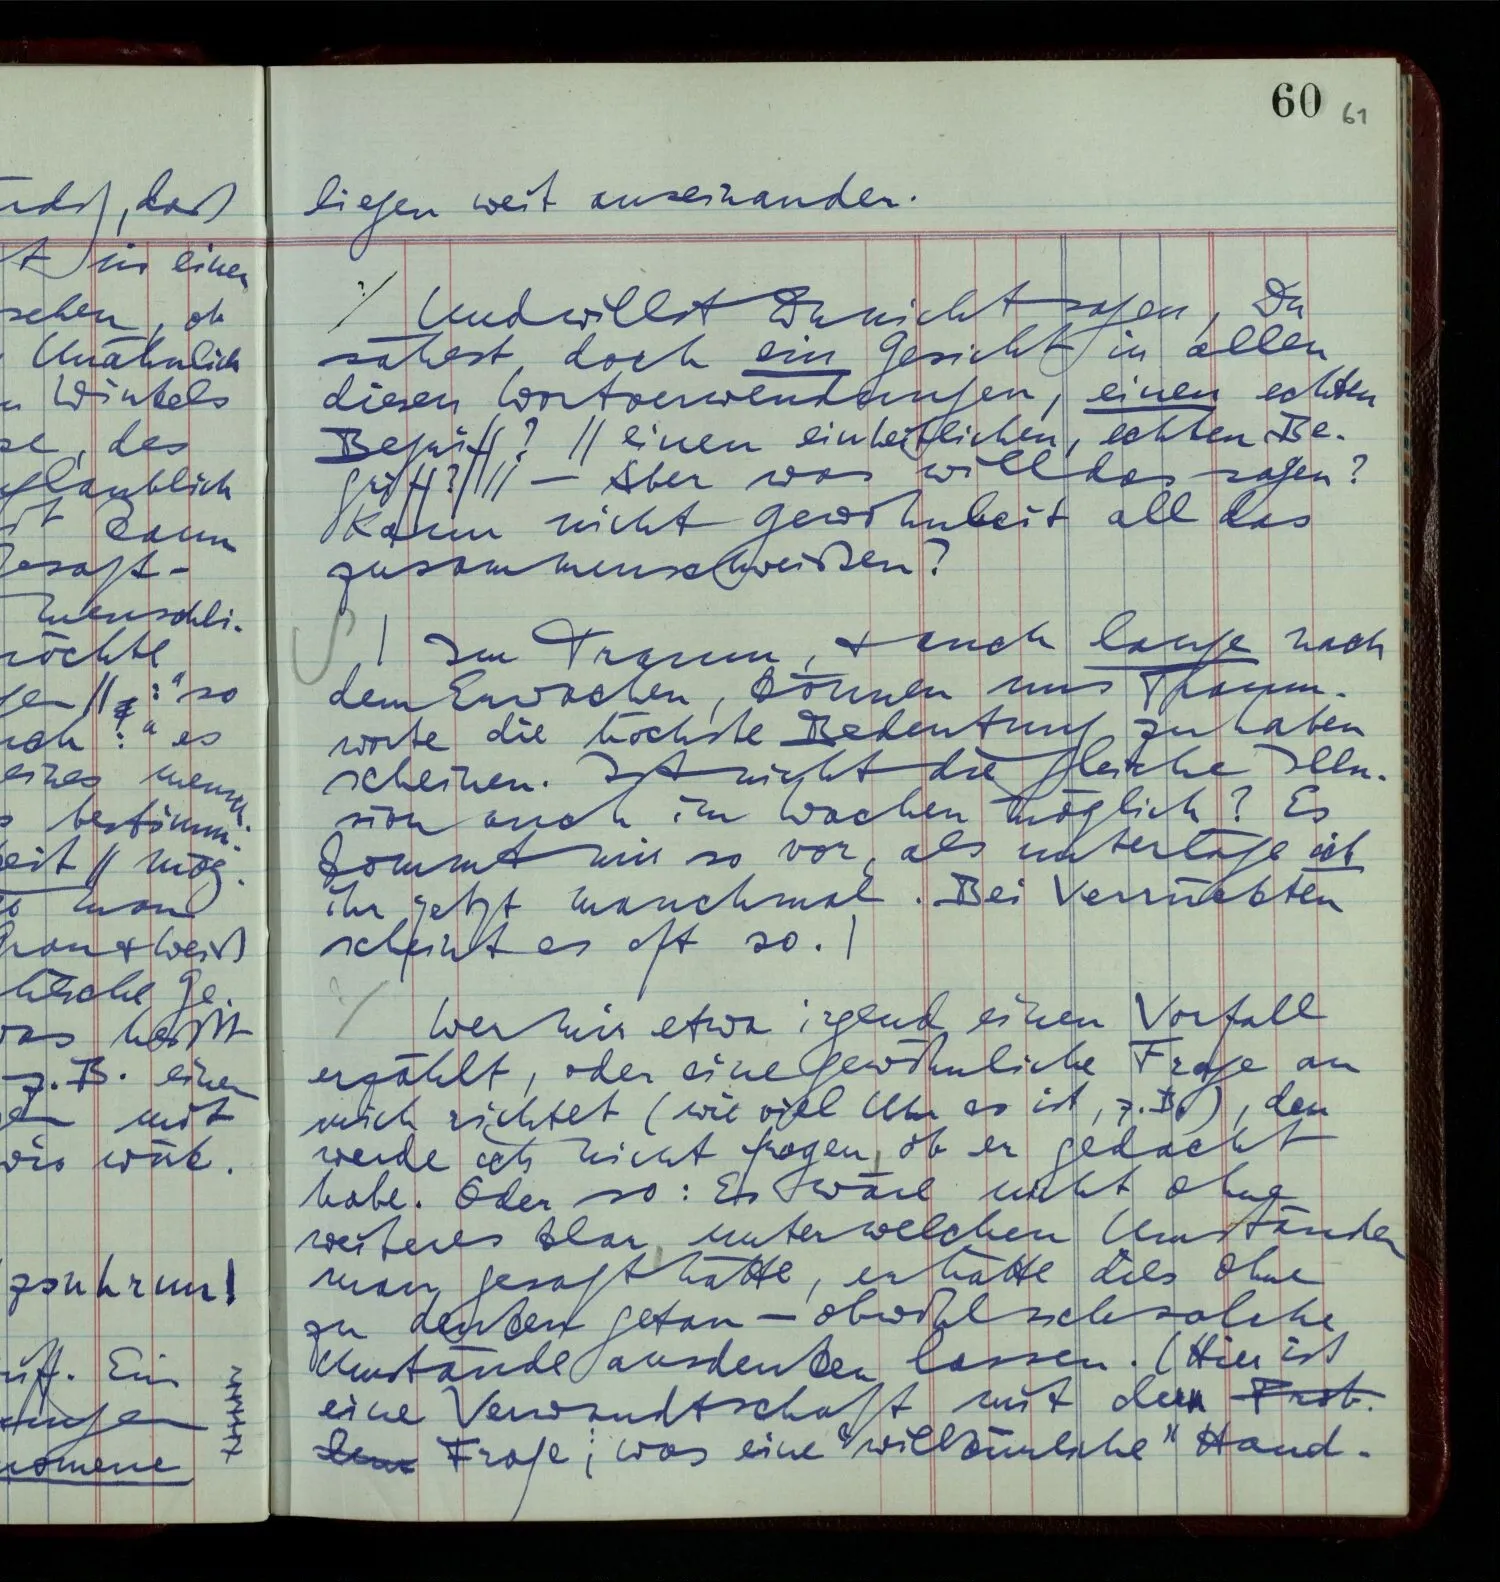 60 61
liegen weit auseinander.
?/ Und willst Du nicht sagen, Du
sähest doch ein Gesicht in allen
diesen Wortverwendungen, einen echten
Begriff? // einen einheitlichen, echten Be-
griff? // // — Aber was will das sagen?
Kann nicht Gewohnheit all das
zusammenschweißen?
S | Im Traum, + auch lange nach
dem Erwachen, können uns Traum-
worte die höchste Bedeutung zu haben
scheinen. Ist nicht die gleiche Illu-
sion auch im Wachen möglich? Es
kommt mir so vor, als unterläge ich
ihr jetzt manchmal. Bei Verrückten
scheint es oft so. |
?/ Wer mir etwa irgend einen Vorfall
erzählt, oder eine gewöhnliche Frage an
mich richtet (wie viel Uhr es ist, z.B.), den
werde ich nicht fragen, ob er gedacht
habe. Oder so: Es wäre nicht ohne
weiteres klar, unter welchen Umständen
man gesagt hätte, er hätte dies ohne
zu denken getan — obwohl sich solche
Umstände ausdenken lassen. (Hier ist
eine Verwandtschaft mit der Prob-
lem Frage; was eine "willkürliche" Hand-
dass
in einen
sehen, ob
Unähnlich
Winkels
des
glaublich
kann
gesagt-
menschli-
möchte
so
es
eines mensch-
bestimm-
mög-
man
grau + weiß
Ge-
was heißt
z.B. einen
mit
wäre.
Ein